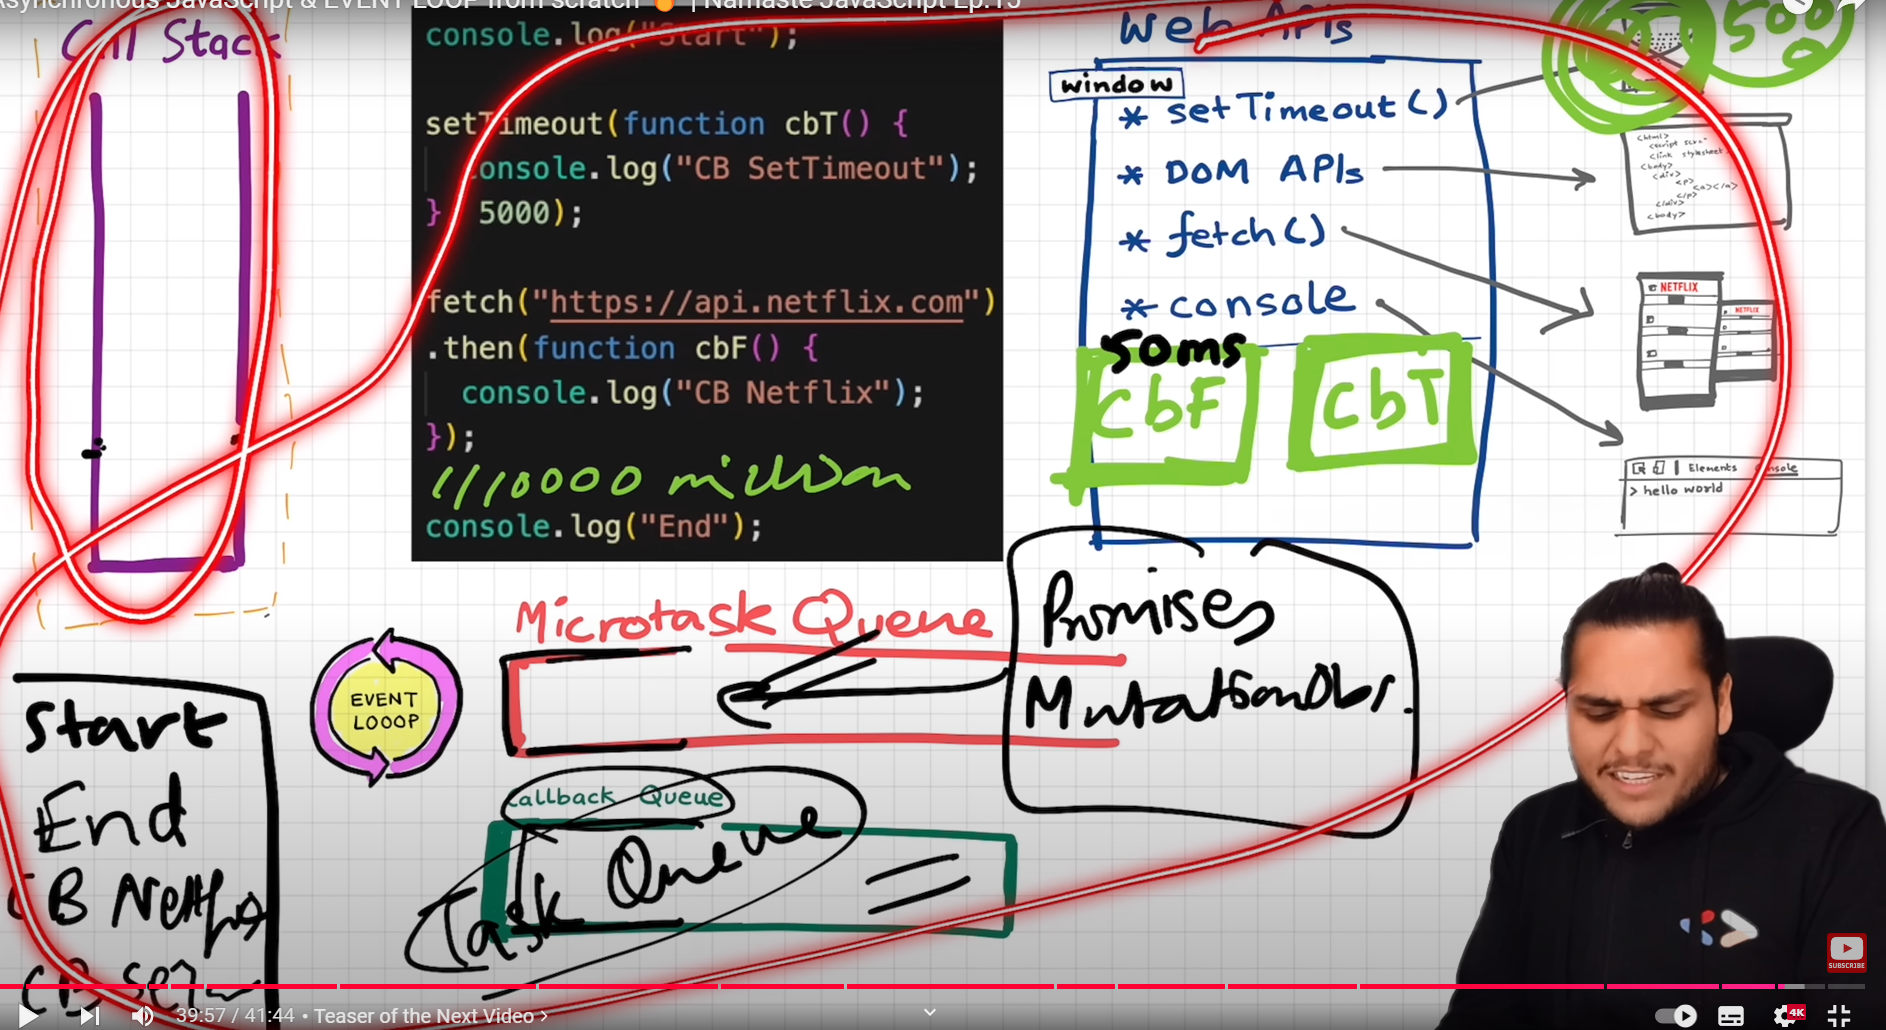 Asynchronous JavaScript & EVENT LOOP from scratch 🔥 | Namaste JavaScript Ep.15
Call Stack
console.log("Start");
setTimeout(function cbT() {
console.log("CB SetTimeout");
} 5000);
fetch("https://api.netflix.com")
.then(function cbF() {
console.log("CB Netflix");
});
////10000 million
console.log("End");
Web APIs
window
* setTimeout()
* DOM APIs
* fetch()
* console
50ms
CbF
CbT
5000
<html>
<link stylesheet
<body>
<div>
<p>
<a></a>
</p>
</div>
<body>
NETFLIX
NETFLIX
Elements Console
> hello world
Microtask Queue
Promises
MutationObs.
EVENT
LOOOP
Callback Queue
Task Queue
Start
End
CB Netflix
CB Set
SUBSCRIBE
39:57 / 41:44 • Teaser of the Next Video >
4K